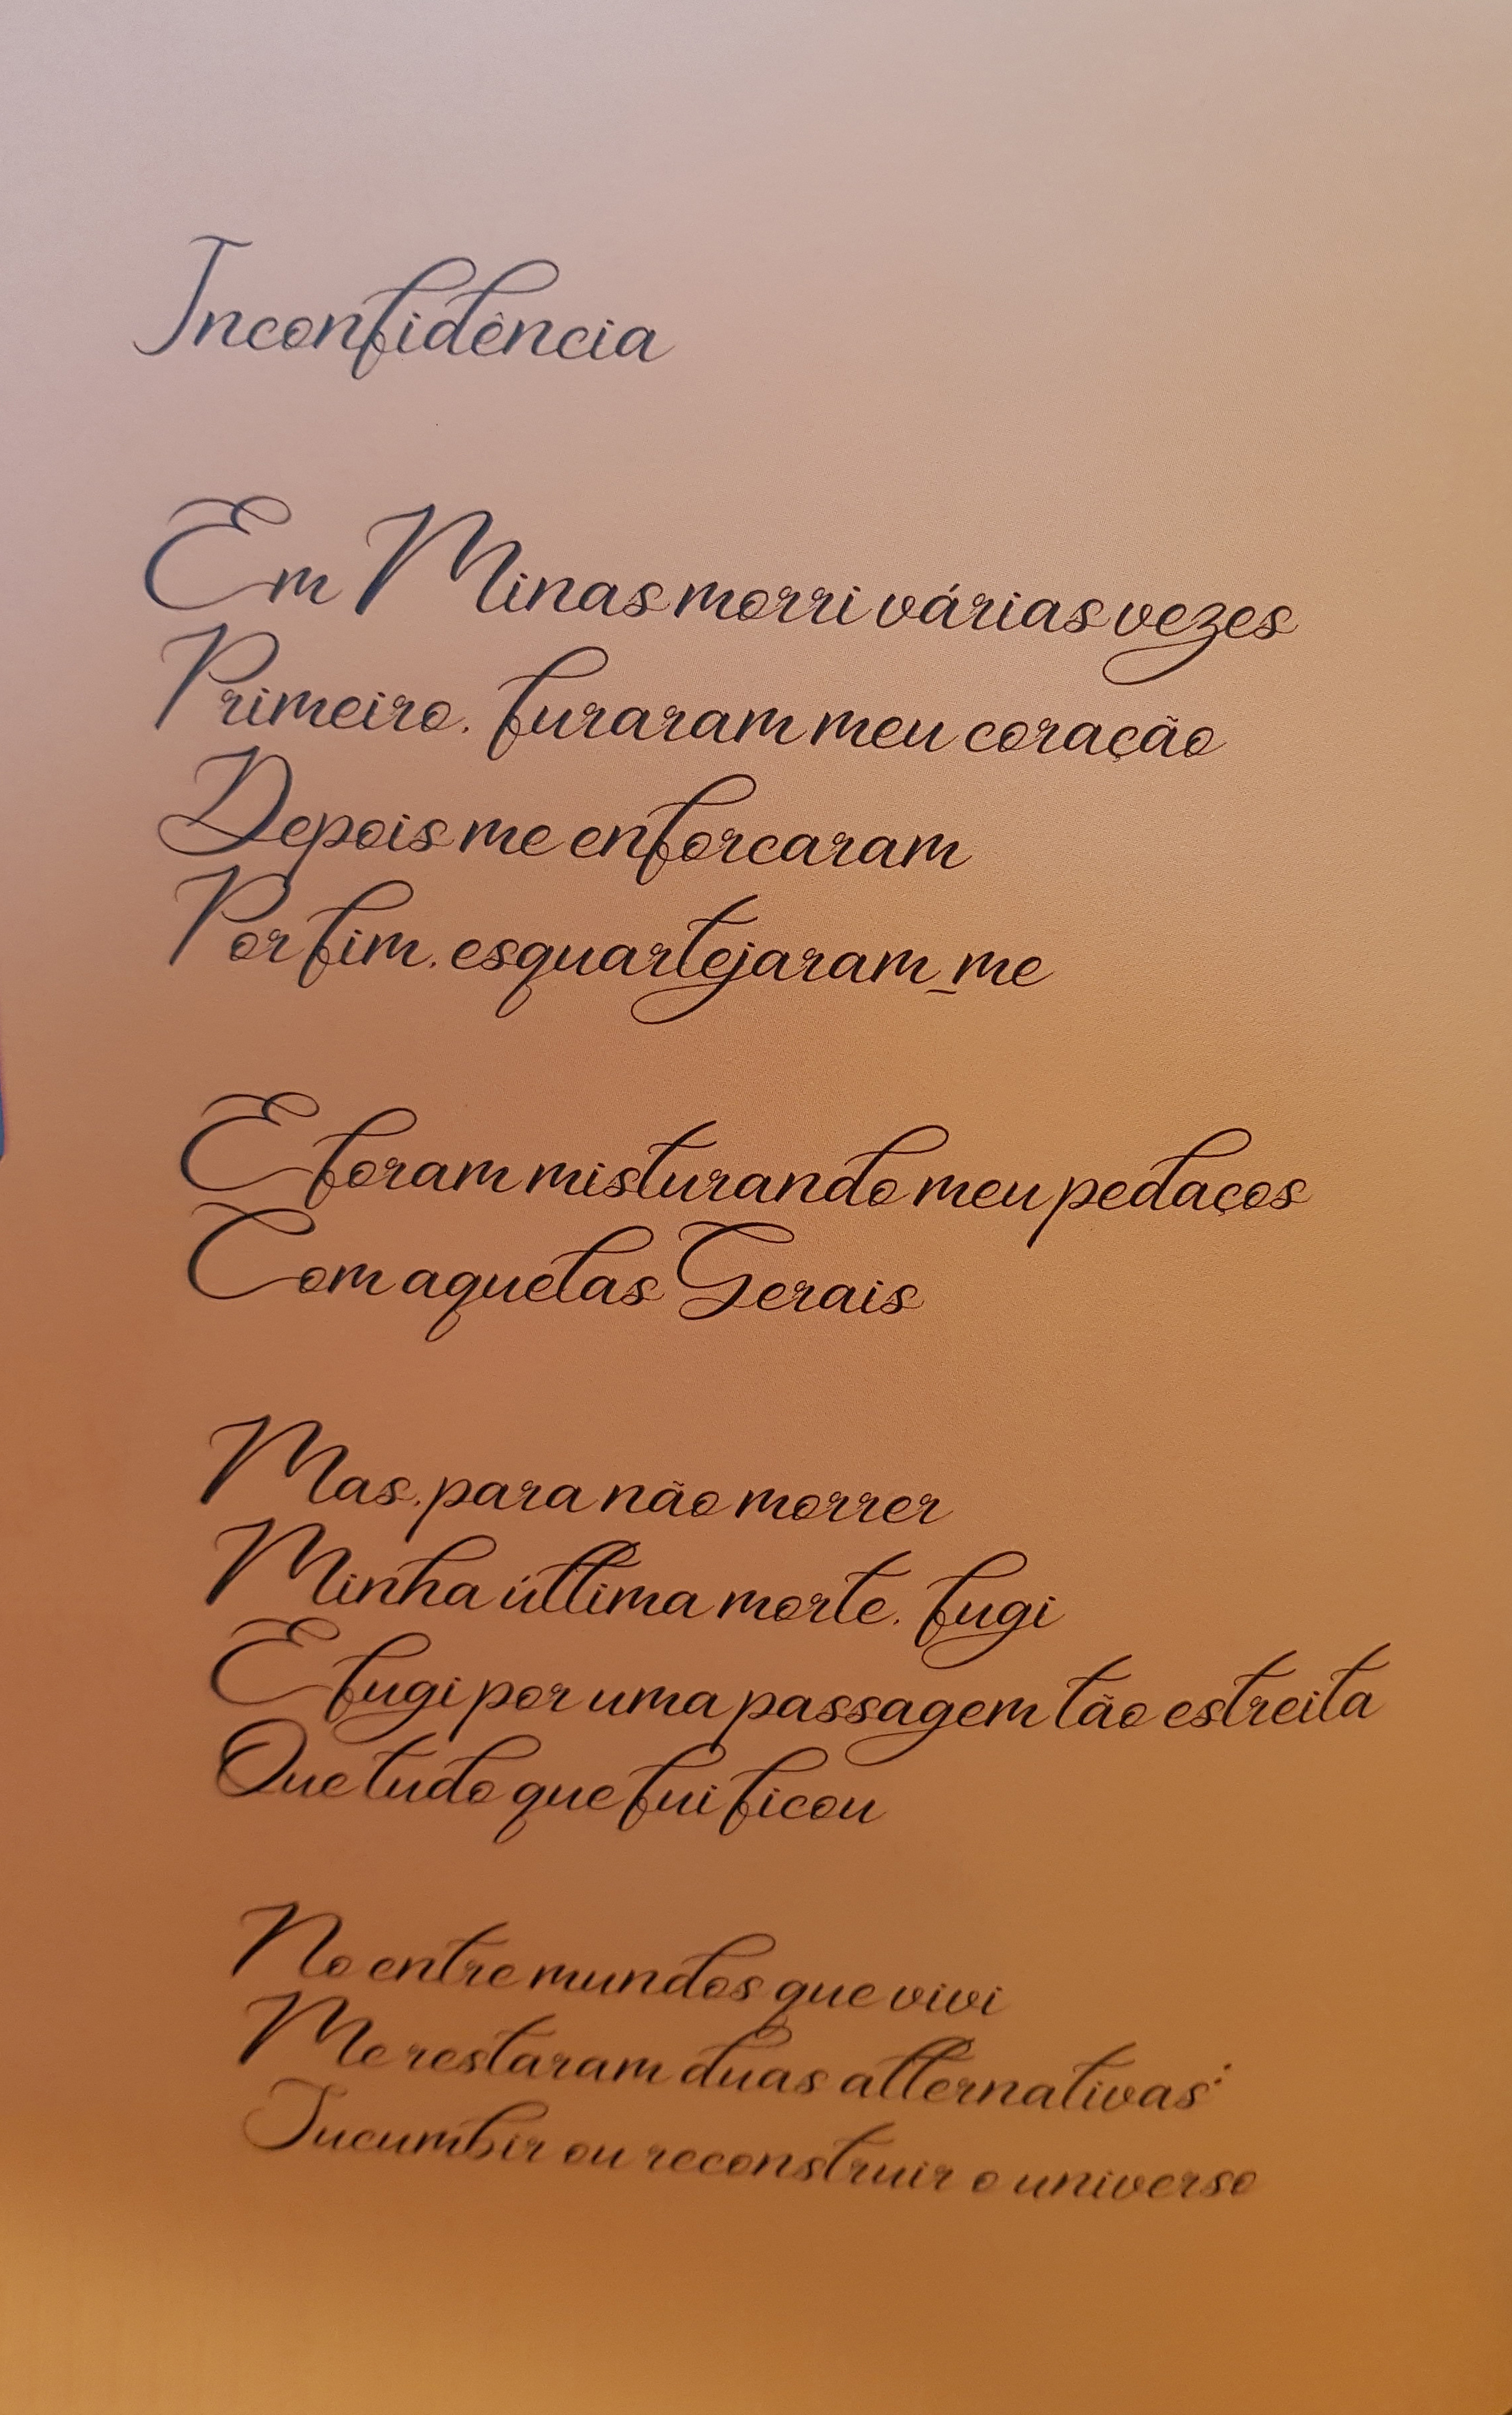 Inconfidência
Em Minas morri várias vezes
Primeiro, furaram meu coração
Depois me enforcaram
Por fim, esquartejaram-me
E foram misturando meu pedaços
Com aquelas Gerais
Mas, para não morrer
Minha última morte, fugi
E fugi por uma passagem tão estreita
Que tudo que fui ficou
No entre mundos que vivi
Me restaram duas alternativas:
Sucumbir ou reconstruir o universo